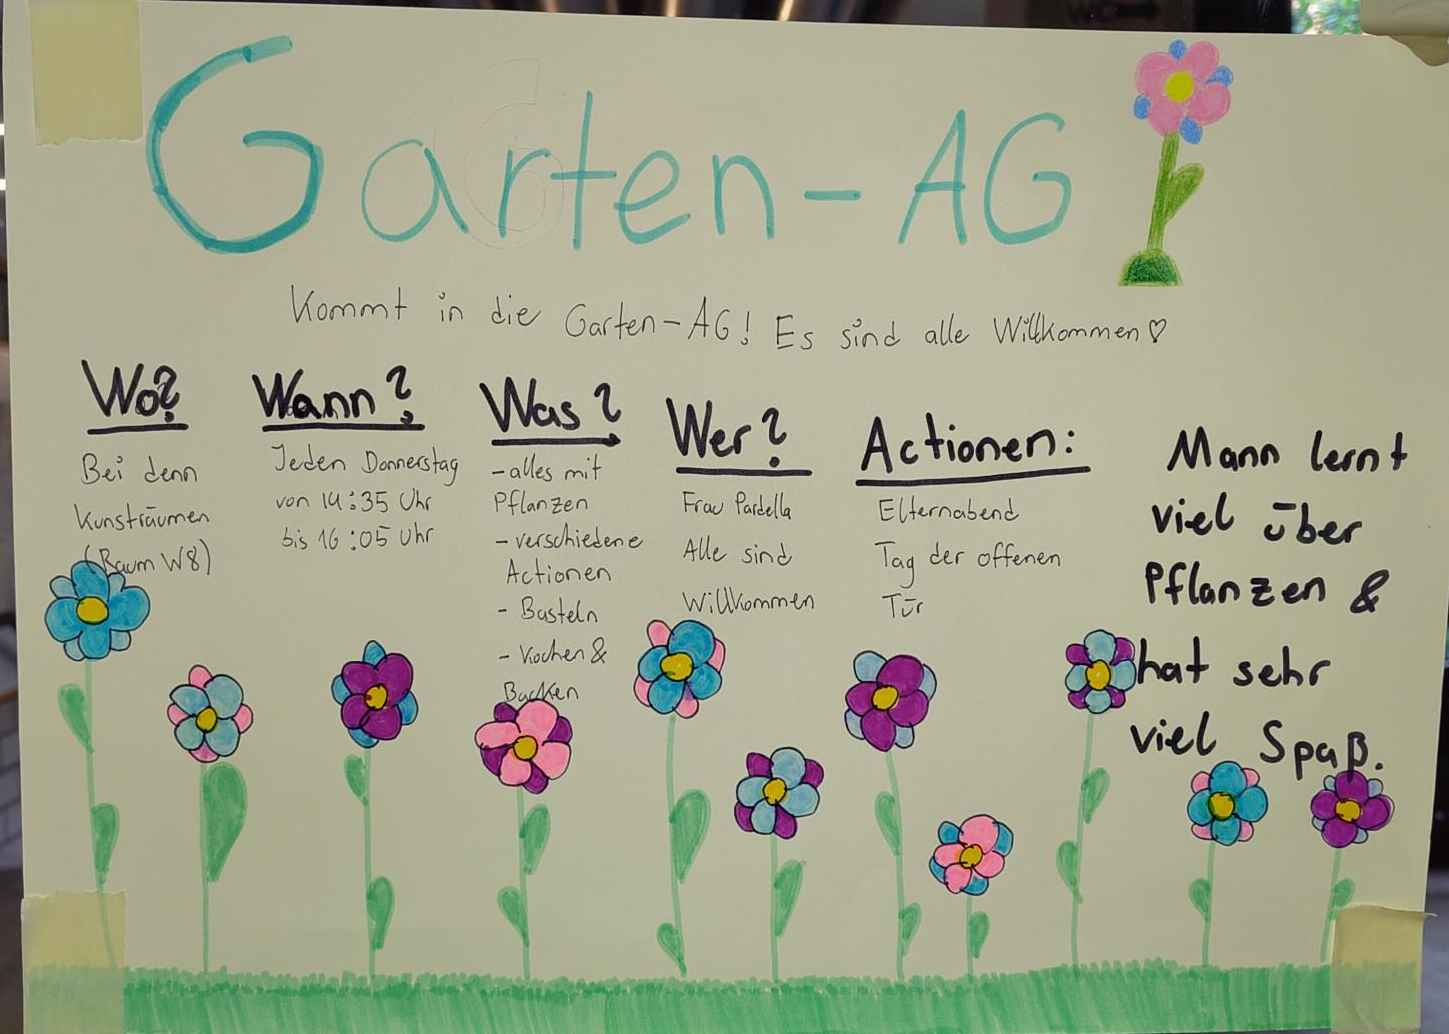 Garten-AG
Kommt in die Garten-AG! Es sind alle Willkommen♡
Wo?
Bei denn
Kunsträumen
(Raum W8)
Wann?
Jeden Donnerstag
von 14:35 Uhr
bis 16:05 Uhr
Was?
-alles mit
Pflanzen
-verschiedene
Actionen
- Basteln
- Kochen &
Backen
Wer?
Frau Pardella
Alle sind
Willkommen
Actionen:
Elternabend
Tag der offenen
Tür
Mann lernt
viel über
Pflanzen &
hat sehr
viel Spaß.